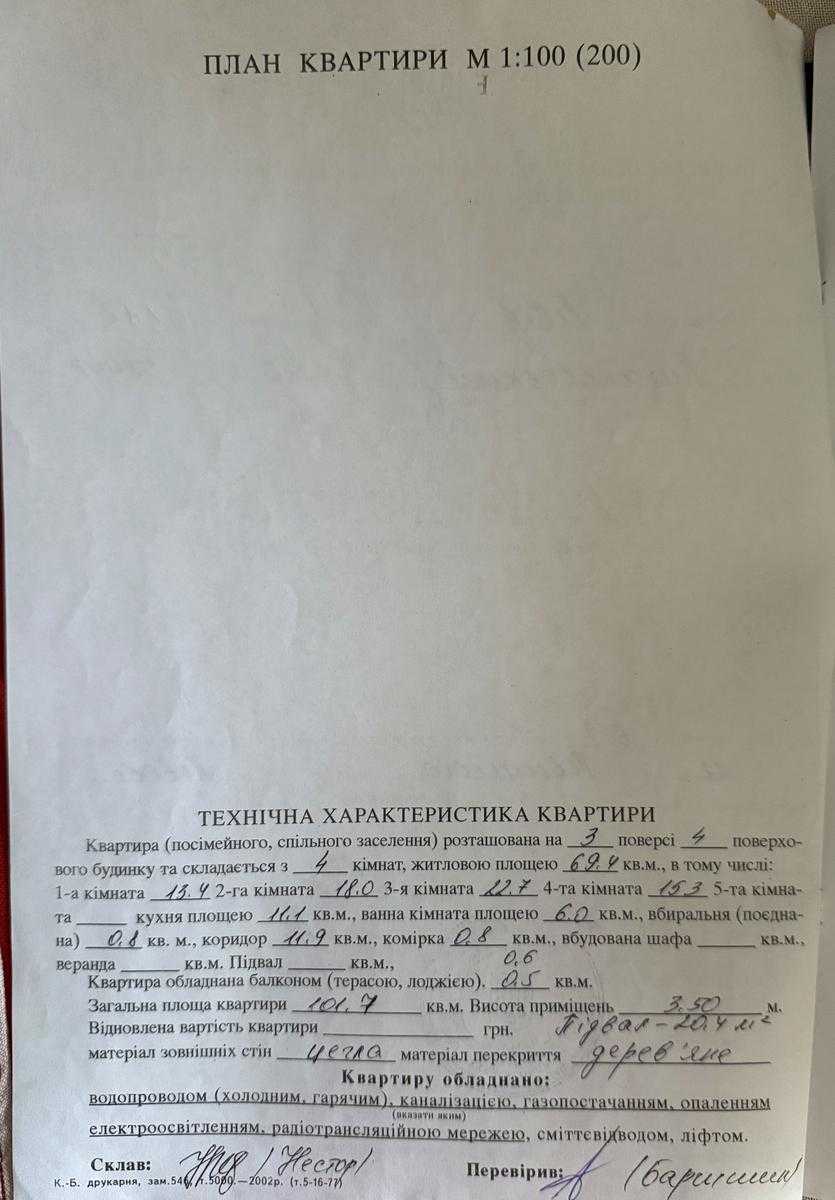 ПЛАН КВАРТИРИ М 1:100 (200)
ТЕХНІЧНА ХАРАКТЕРИСТИКА КВАРТИРИ
Квартира (посімейного, спільного заселення) розташована на 3 поверсі 4 поверхо-
вого будинку та складається з 4 кімнат, житловою площею 69.4 кв.м., в тому числі:
1-а кімната 13.4 2-га кімната 18.0 3-я кімната 22.7 4-та кімната 15.3 5-та кімна-
та ______ кухня площею 11.1 кв.м., ванна кімната площею 6.0 кв.м., вбиральня (поєдна-
на) 0.8 кв. м., коридор 11.9 кв.м., комірка 0.8 кв.м., вбудована шафа ______ кв.м.,
0,6
веранда ______ кв.м. Підвал ______ кв.м.,
Квартира обладнана балконом (терасою, лоджією). 0.5 кв.м.
Загальна площа квартири 101.7 кв.м. Висота приміщень 3.50 м.
Відновлена вартість квартири ______ грн. Підвал – 20.4 м²
матеріал зовнішніх стін цегла матеріал перекриття дерев'яне
Квартиру обладнано:
водопроводом (холодним, гарячим), каналізацією, газопостачанням, опаленням
(вказати яким)
електроосвітленням, радіотрансляційною мережею, сміттєвідводом, ліфтом.
Склав: /Нестор/ Перевірив:
К.-Б. друкарня, зам.546, т.5000.—2002р. (т.5-16-77)